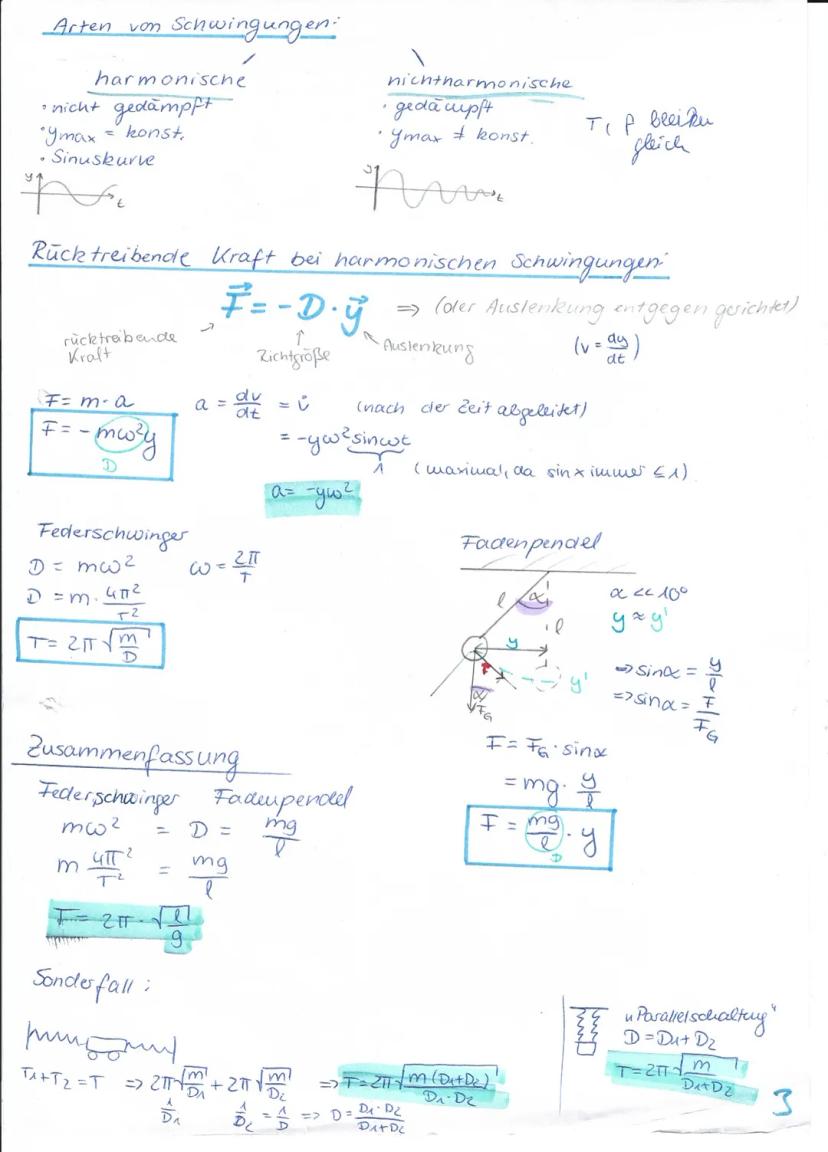 Arten von Schwingungen:
harmonische
• nicht gedämpft
• ymax = konst.
• Sinuskurve
y
t
nichtharmonische
• gedämpft
• ymax ≠ konst.
y
t
T, f bleiben
gleich
Rücktreibende Kraft bei harmonischen Schwingungen:
F⃗ = -D · y⃗ ⇒ (der Auslenkung entgegen gerichtet)
rücktreibende
Kraft
Richtgröße
Auslenkung
(v = dy/dt)
F = m · a
a = dv/dt = v̇ (nach der Zeit abgeleitet)
F = - mω²y
D
= -yω² sinωt
1 (maximal, da sin x immer ≤ 1)
a = -yω²
Federschwinger
D = mω² ω = 2π/T
D = m · 4π²/T²
T = 2π √(m/D)
Fadenpendel
l α l
y
F y'
α
FG
α << 10°
y ≈ y'
⇒ sinα = y/l
⇒ sinα = F/FG
F = FG · sinα
= mg · y/l
F = mg/l · y
D
Zusammenfassung
Federschwinger Fadenpendel
mω² = D = mg/l
m 4π²/T² = mg/l
T = 2π · √(l/g)
Sonderfall:
T1+T2 = T ⇒ 2π√(m/D1) + 2π√(m/D2) ⇒ T = 2π√(m(D1+D2)/(D1·D2))
1/D1 1/D2 = 1/D ⇒ D = D1·D2/(D1+D2)
"Parallelschaltung"
D = D1+D2
T = 2π√(m/(D1+D2))
3